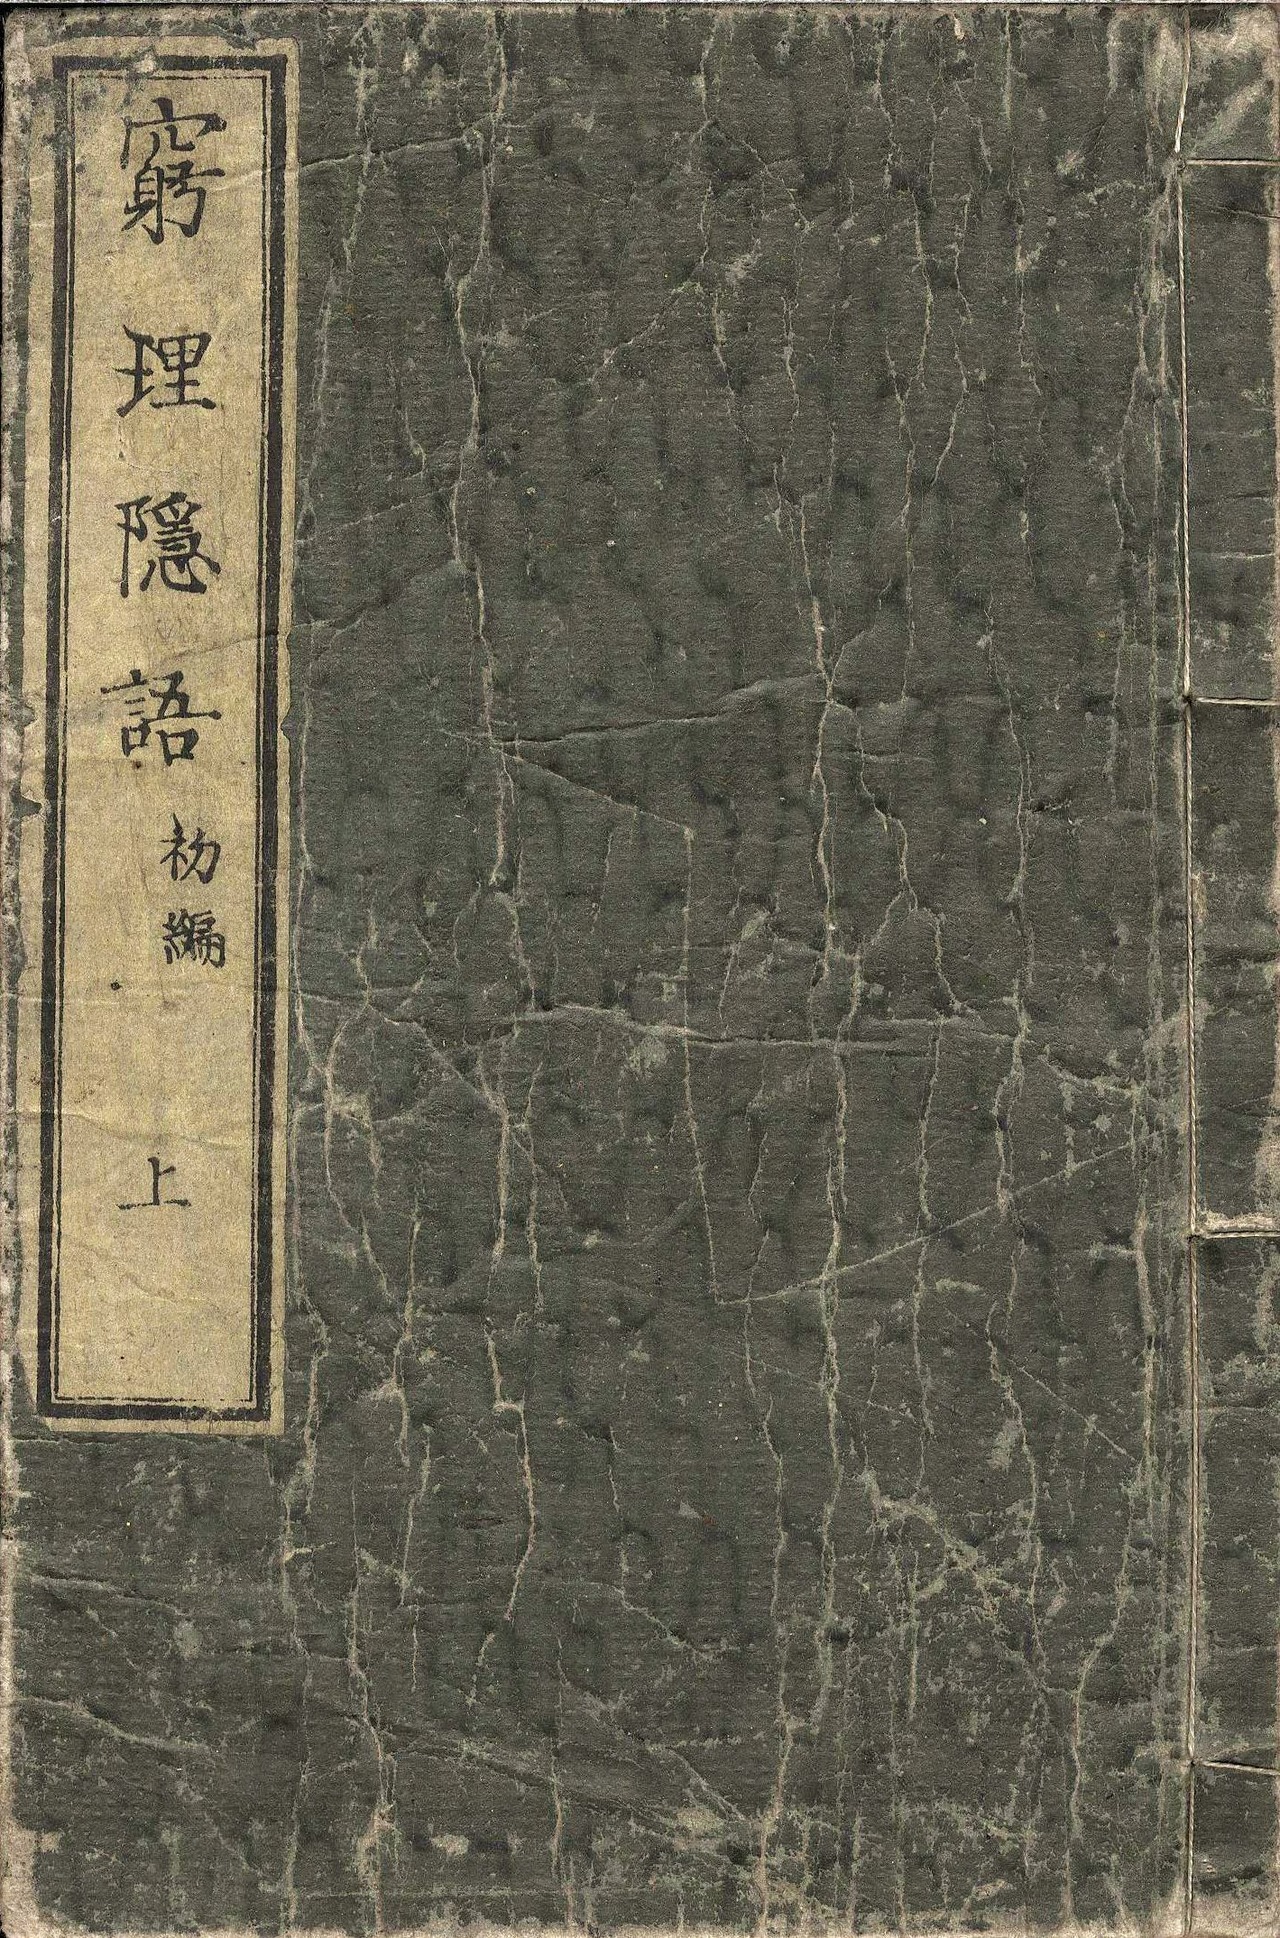 窮理隠語初編 上